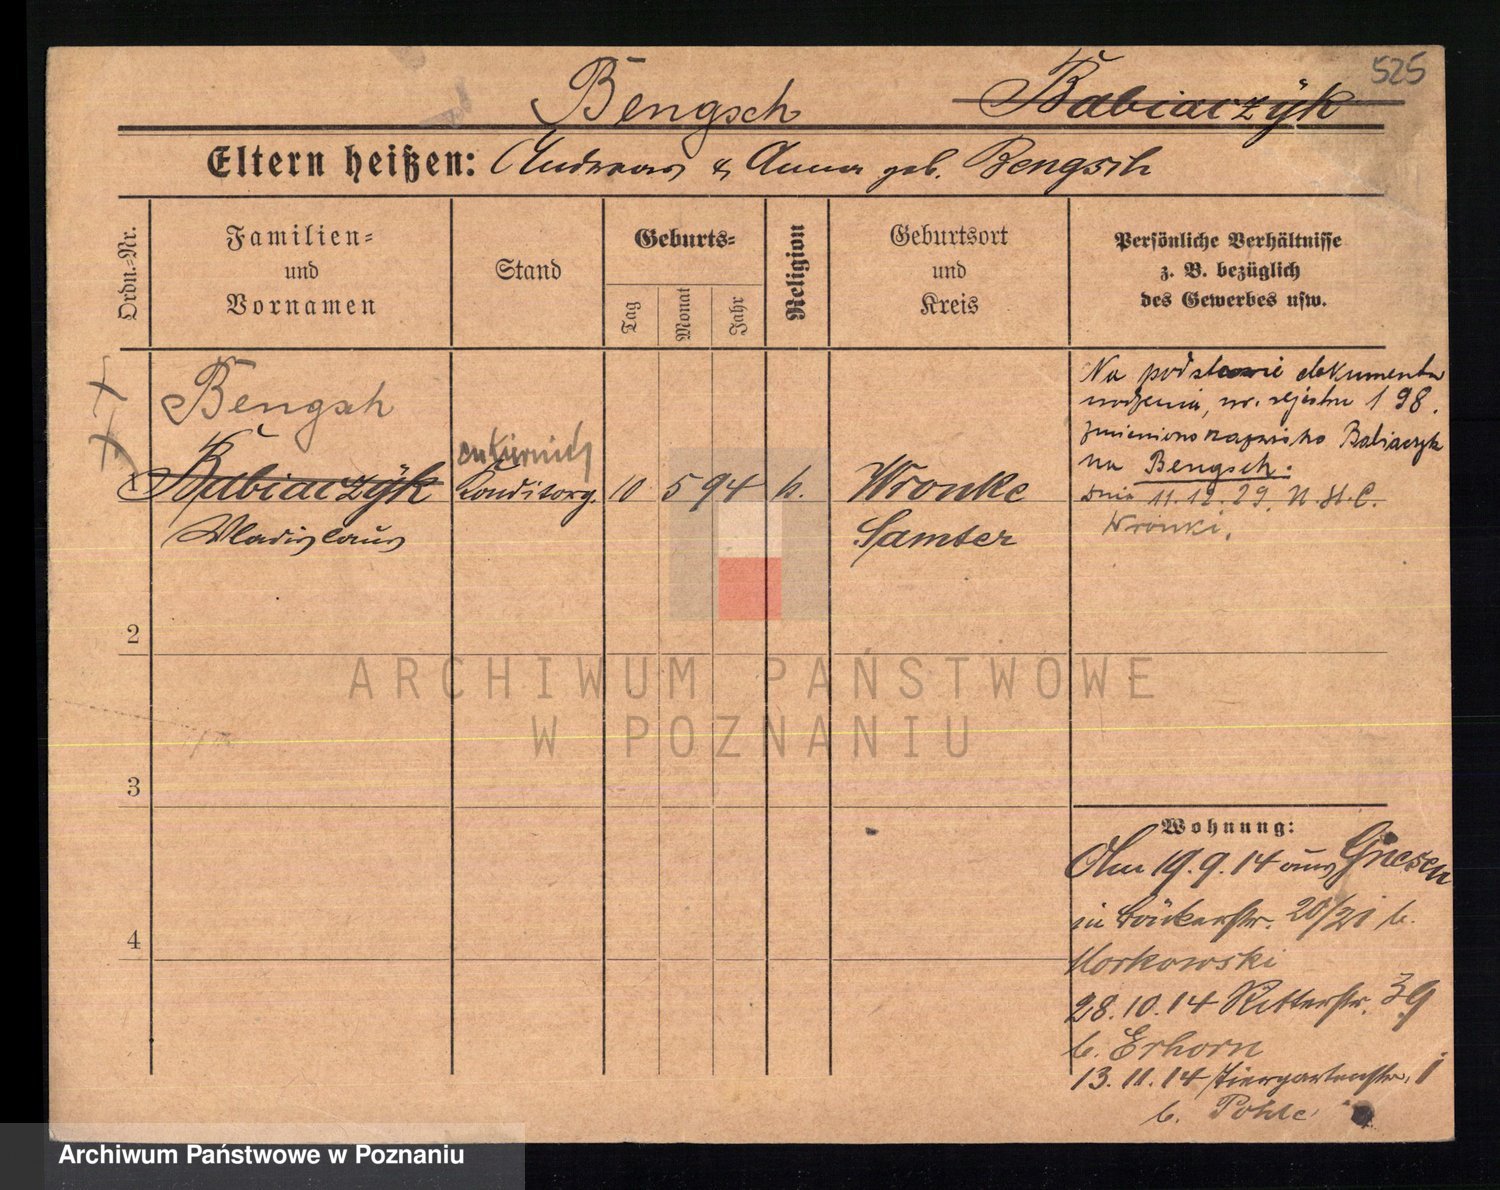 525
Bengsch Babiaczÿk
Eltern heißen: Andreas & Anna geb. Bengsch
Ordn.=Nr.
Familien=
und
Vornamen
Stand
Geburts=
Tag
Monat
Jahr
Religion
Geburtsort
und
Kreis
Persönliche Verhältnisse
z. B. bezüglich
des Gewerbes usw.
Bengsch
1 Babiaczÿk
Wladislaus
cukiernick
Konditorg. 10 5 94 k. Wronke
Samter
Na podstawie dokumentu
urodzenia, nr. rejestru 198.
zmieniono nazwisko Babiaczyk
na Bengsch.
Dnia 11.12.29. U.S.C.
Wronki.
2
3
4
Wohnung:
19.9.14 aus Gnesen
in Bäckerstr. 20/21 b.
Morkowski
28.10.14 Ritterstr. 39
b. Erhorn
13.11.14 Tiergartenstr. 1
b. Pohle
ARCHIWUM PAŃSTWOWE
W POZNANIU
Archiwum Państwowe w Poznaniu